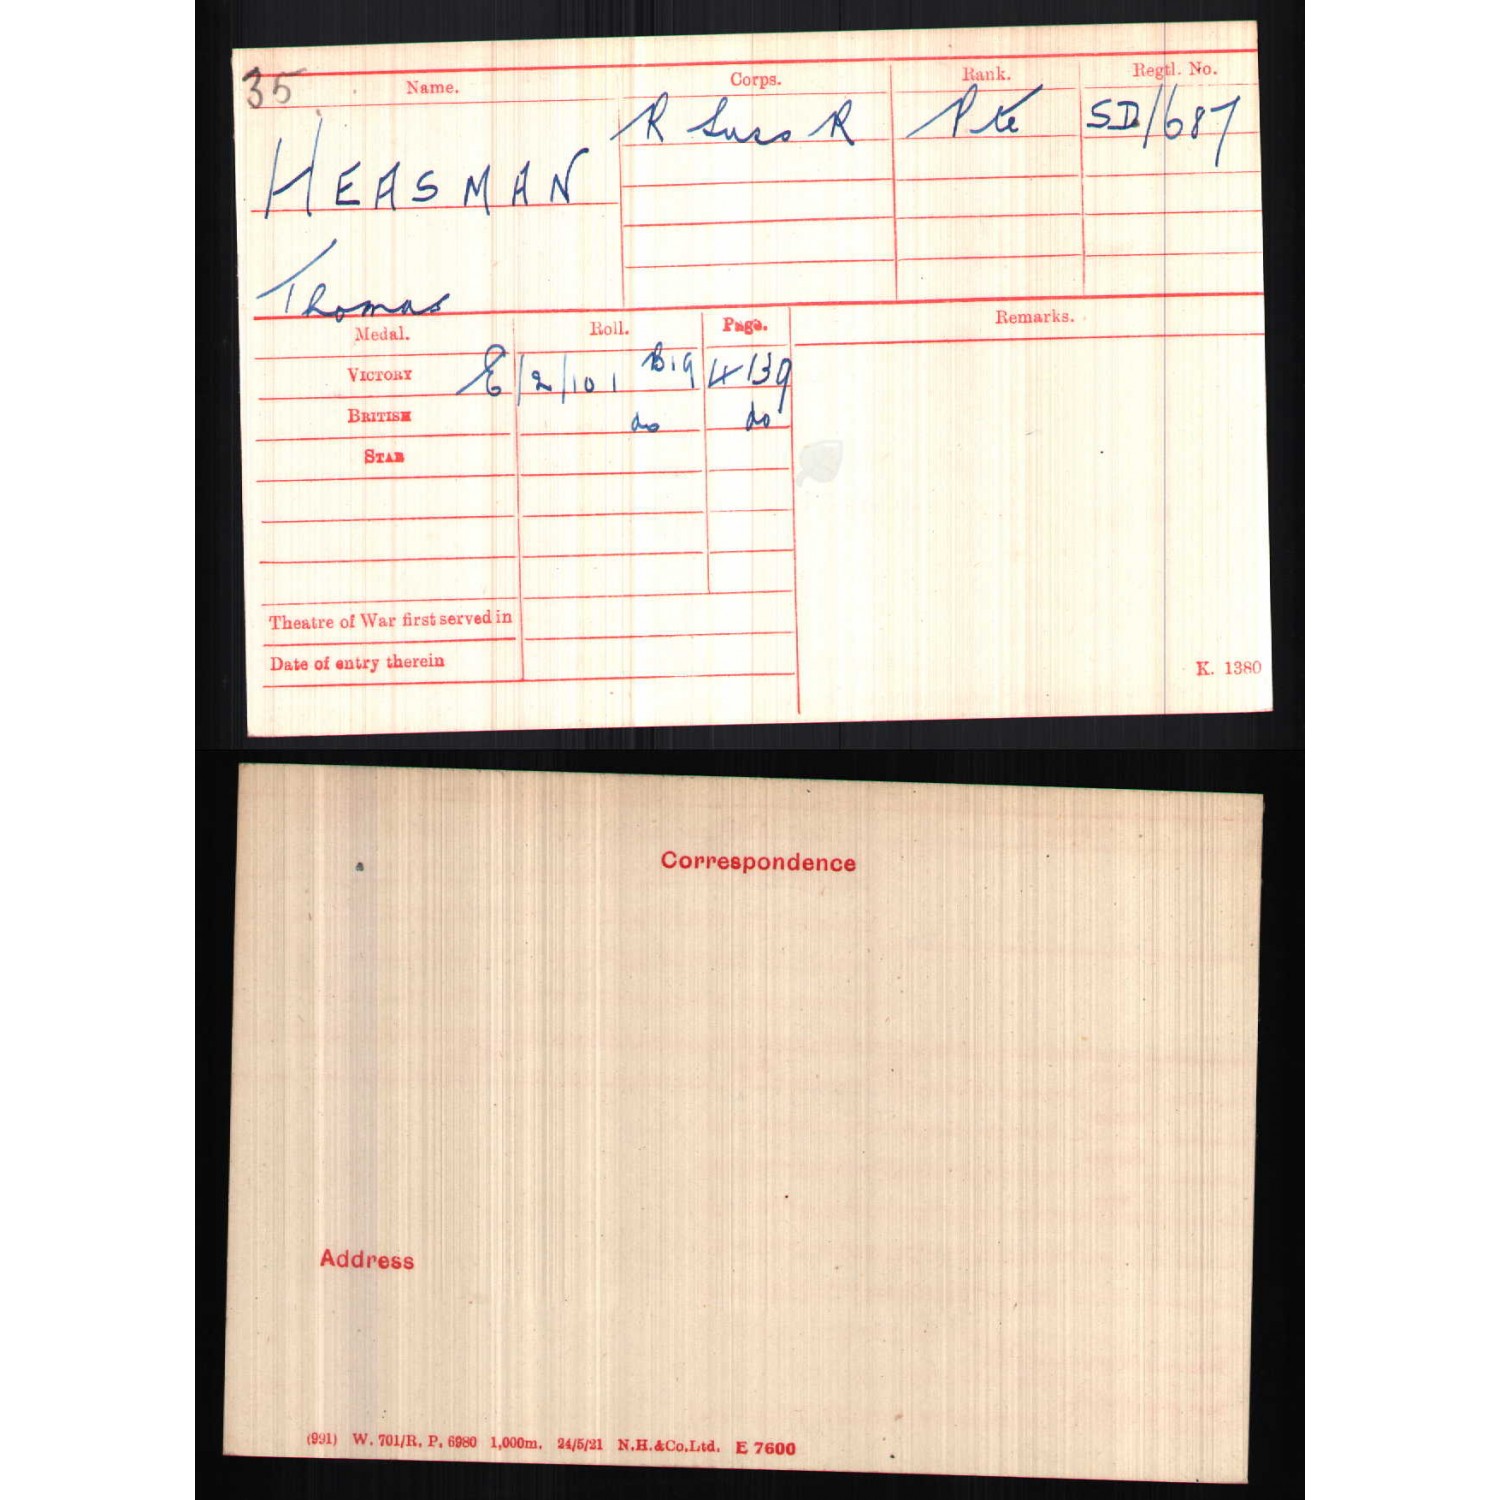 35
Name. Corps. Rank. Regtl. No.
R Suss R Pte SD/687
HEASMAN
Thomas
Medal. Roll. Page. Remarks.
VICTORY E/2/101 B19 4139
BRITISH do do
STAR
Theatre of War first served in
Date of entry therein
K. 1380
Correspondence
Address
(991) W. 701/R. P. 6980 1,000m. 24/5/21 N.H.&Co.Ltd. E 7600